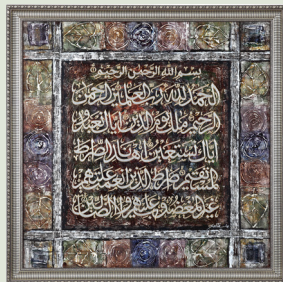 بسم الله الرحمن الرحيم
الحمد لله رب العالمين الرحمن
الرحيم مالك يوم الدين إياك نعبد و
إياك نستعين اهدنا الصراط
المستقيم صراط الذين أنعمت عليهم
غير المغضوب عليهم ولا الضالين